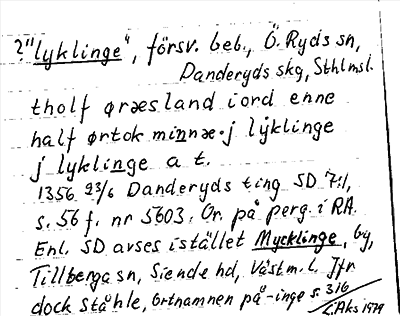 ?"lyklinge", försv. beb., Ö. Ryds sn,
Danderyds skg, Sthlmsl.
tholf øræsland i ord enne
half ørtok minnæ. j lyklinge
j lyklinge a t.
1356 23/6 Danderyds ting SD 7:1,
s. 56 f. nr 5603. Or. på perg. i RA.
Enl. SD avses istället Mycklinge, by,
Tillberga sn, Siende hd, Västm. l. Jfr
dock Ståhle, Ortnamnen på -inge s. 316
L. Aks 1979